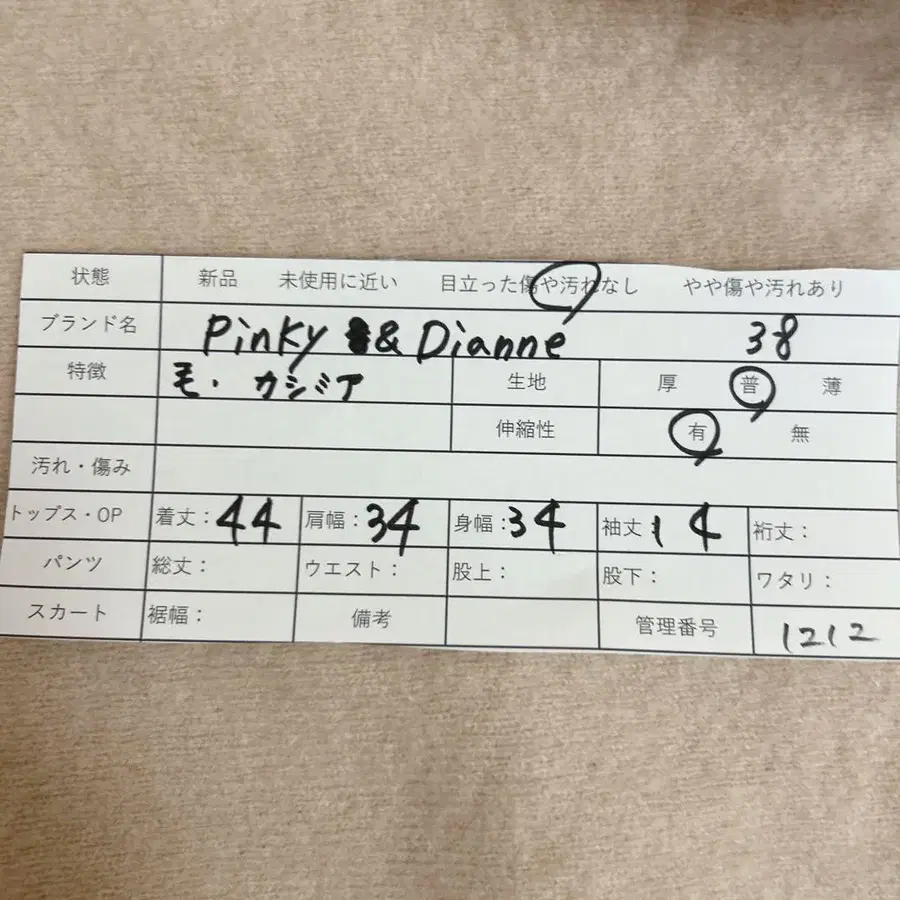 状態 新品 未使用に近い 目立った傷や汚れなし やや傷や汚れあり
ブランド名 Pinky & Dianne 38
特徴 毛・カシミア 生地 厚 普 薄
伸縮性 有 無
汚れ・傷み
トップス・OP 着丈：44 肩幅：34 身幅：34 袖丈 14 裄丈：
パンツ 総丈： ウエスト： 股上： 股下： ワタリ：
スカート 裾幅： 備考 管理番号 1212